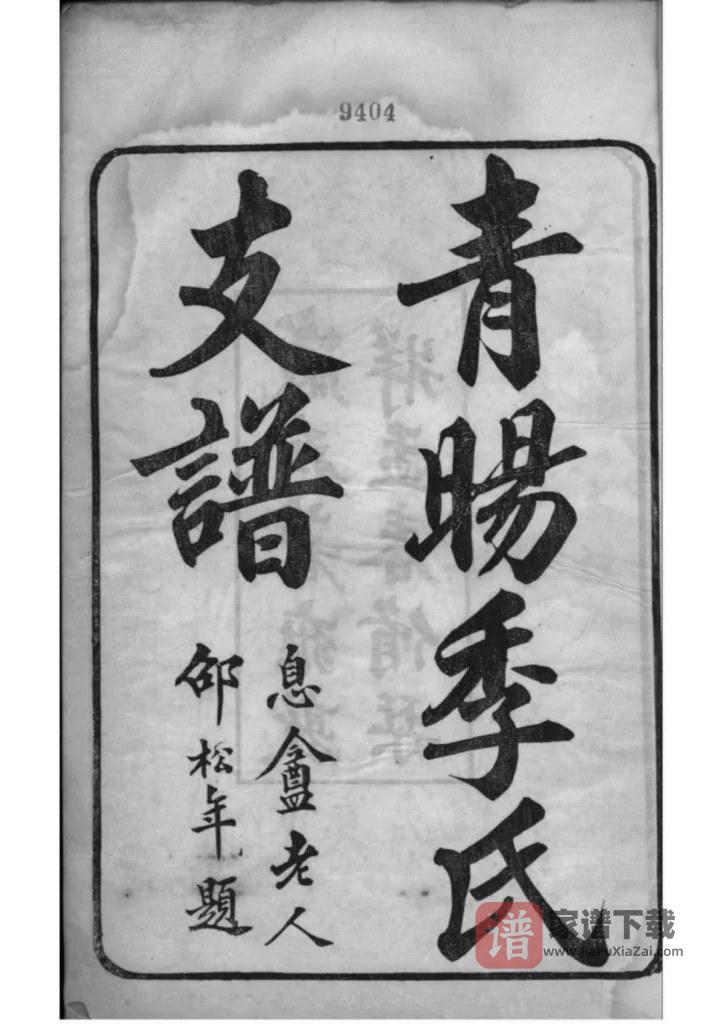 9404
青暘季氏
支譜
息盦老人
邵松年題
谱 家谱下载
www.JiaPuXiaZai.com